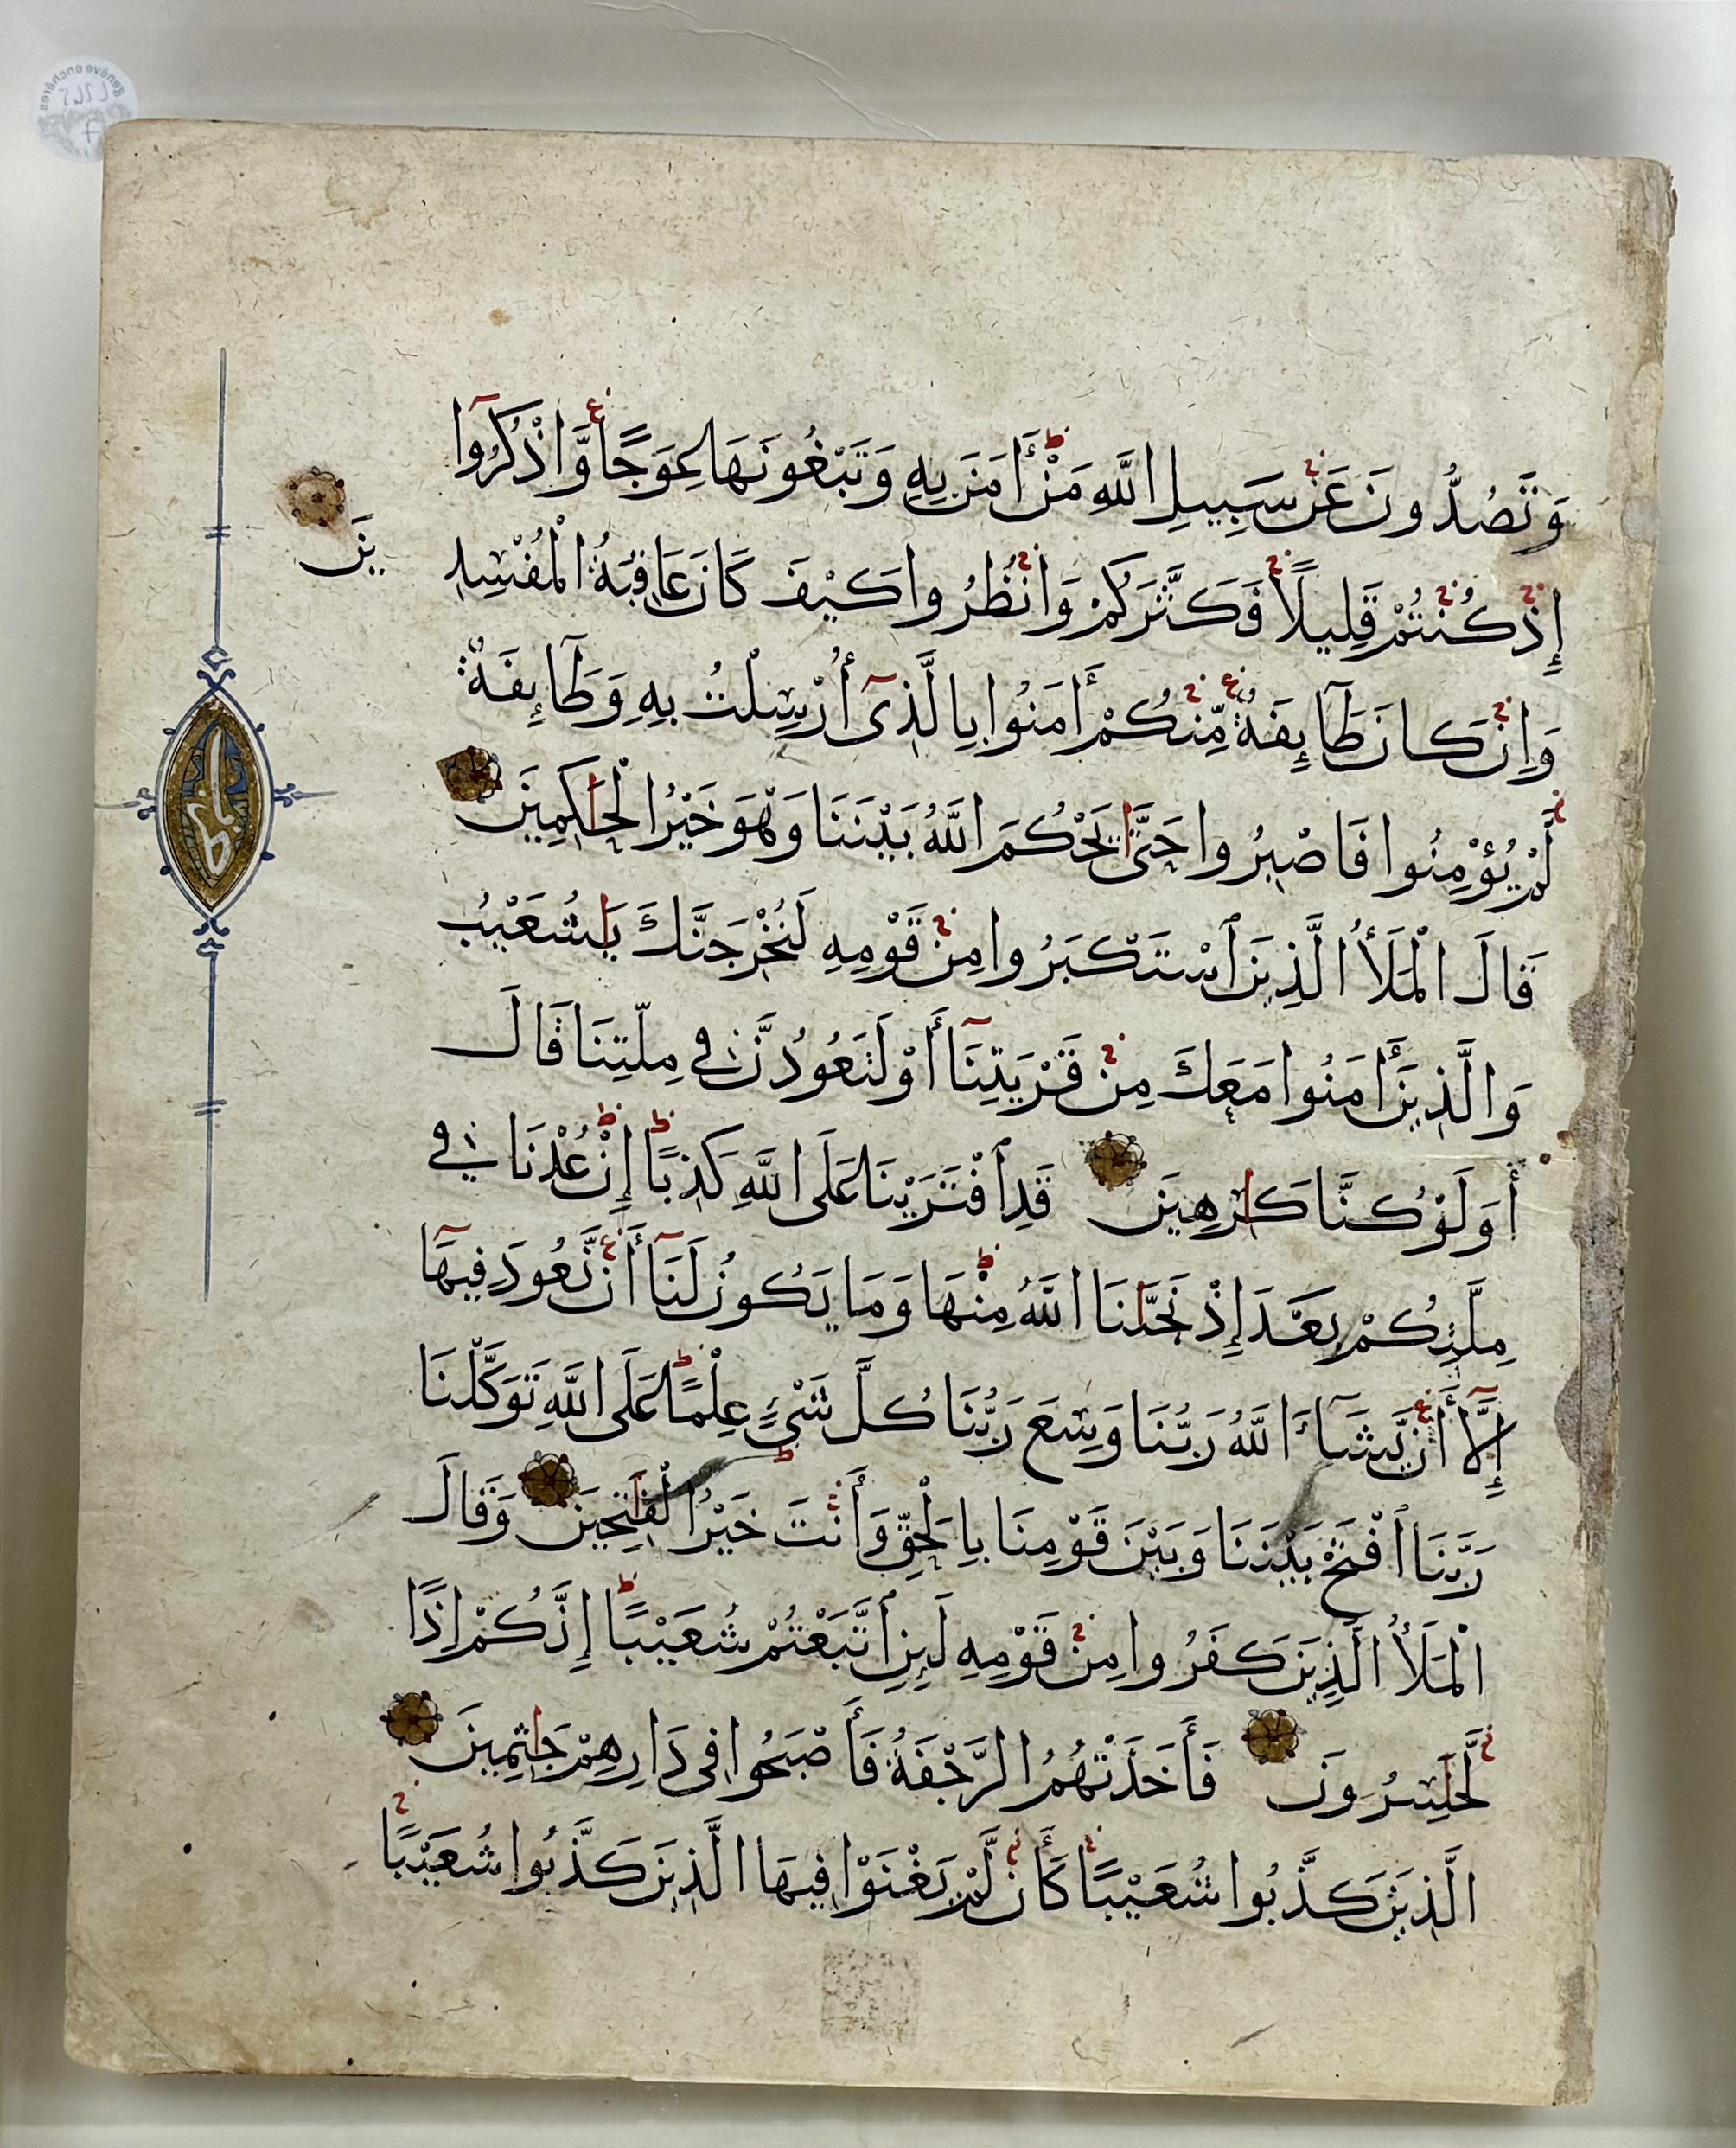 وَتَصُدُّونَ عَنْ سَبِيلِ اللَّهِ مَنْ أَمَنَ بِهِ وَتَبْغُونَهَا عِوَجًا وَاذْكُرُوا
إِذْ كُنْتُمْ قَلِيلًا فَكَثَّرَكُمْ وَانْظُرُوا كَيْفَ كَانَ عَاقِبَةُ الْمُفْسِدِ
ينَ
وَإِنْ كَانَ طَآئِفَةٌ مِّنْكُمْ أَمَنُوا بِالَّذِىٓ أُرْسِلْتُ بِهِ وَطَآئِفَةٌ
لَّمْ يُؤْمِنُوا فَاصْبِرُوا حَتَّىٰ يَحْكُمَ اللَّهُ بَيْنَنَا وَهْوَ خَيْرُ الْحَاكِمِينَ
قَالَ الْمَلَأُ الَّذِينَ ٱسْتَكْبَرُوا مِنْ قَوْمِهِ لَنُخْرِجَنَّكَ يَاشُعَيْبُ
وَالَّذِينَ أَمَنُوا مَعَكَ مِنْ قَرْيَتِنَآ أَوْ لَتَعُودُنَّ فِي مِلَّتِنَا قَالَ
أَوَلَوْ كُنَّا كَارِهِينَ قَدِ ٱفْتَرَيْنَا عَلَى اللَّهِ كَذِبًا إِنْ عُدْنَا فِي
مِلَّتِكُمْ بَعْدَ إِذْ نَجَّانَا اللَّهُ مِنْهَا وَمَا يَكُونُ لَنَآ أَنْ نَّعُودَ فِيهَآ
إِلَّآ أَنْ يَّشَآءَ اللَّهُ رَبُّنَا وَسِعَ رَبُّنَا كُلَّ شَىْءٍ عِلْمًا عَلَى اللَّهِ تَوَكَّلْنَا
رَبَّنَا ٱفْتَحْ بَيْنَنَا وَبَيْنَ قَوْمِنَا بِالْحَقِّ وَأَنْتَ خَيْرُ الْفَاتِحِينَ وَقَالَ
الْمَلَأُ الَّذِينَ كَفَرُوا مِنْ قَوْمِهِ لَئِنِ ٱتَّبَعْتُمْ شُعَيْبًا إِنَّكُمْ إِذًا
لَّخَاسِرُونَ فَأَخَذَتْهُمُ الرَّجْفَةُ فَأَصْبَحُوا فِى دَارِهِمْ جَاثِمِينَ
الَّذِينَ كَذَّبُوا شُعَيْبًا كَأَنْ لَّمْ يَغْنَوْا فِيهَا الَّذِينَ كَذَّبُوا شُعَيْبًا